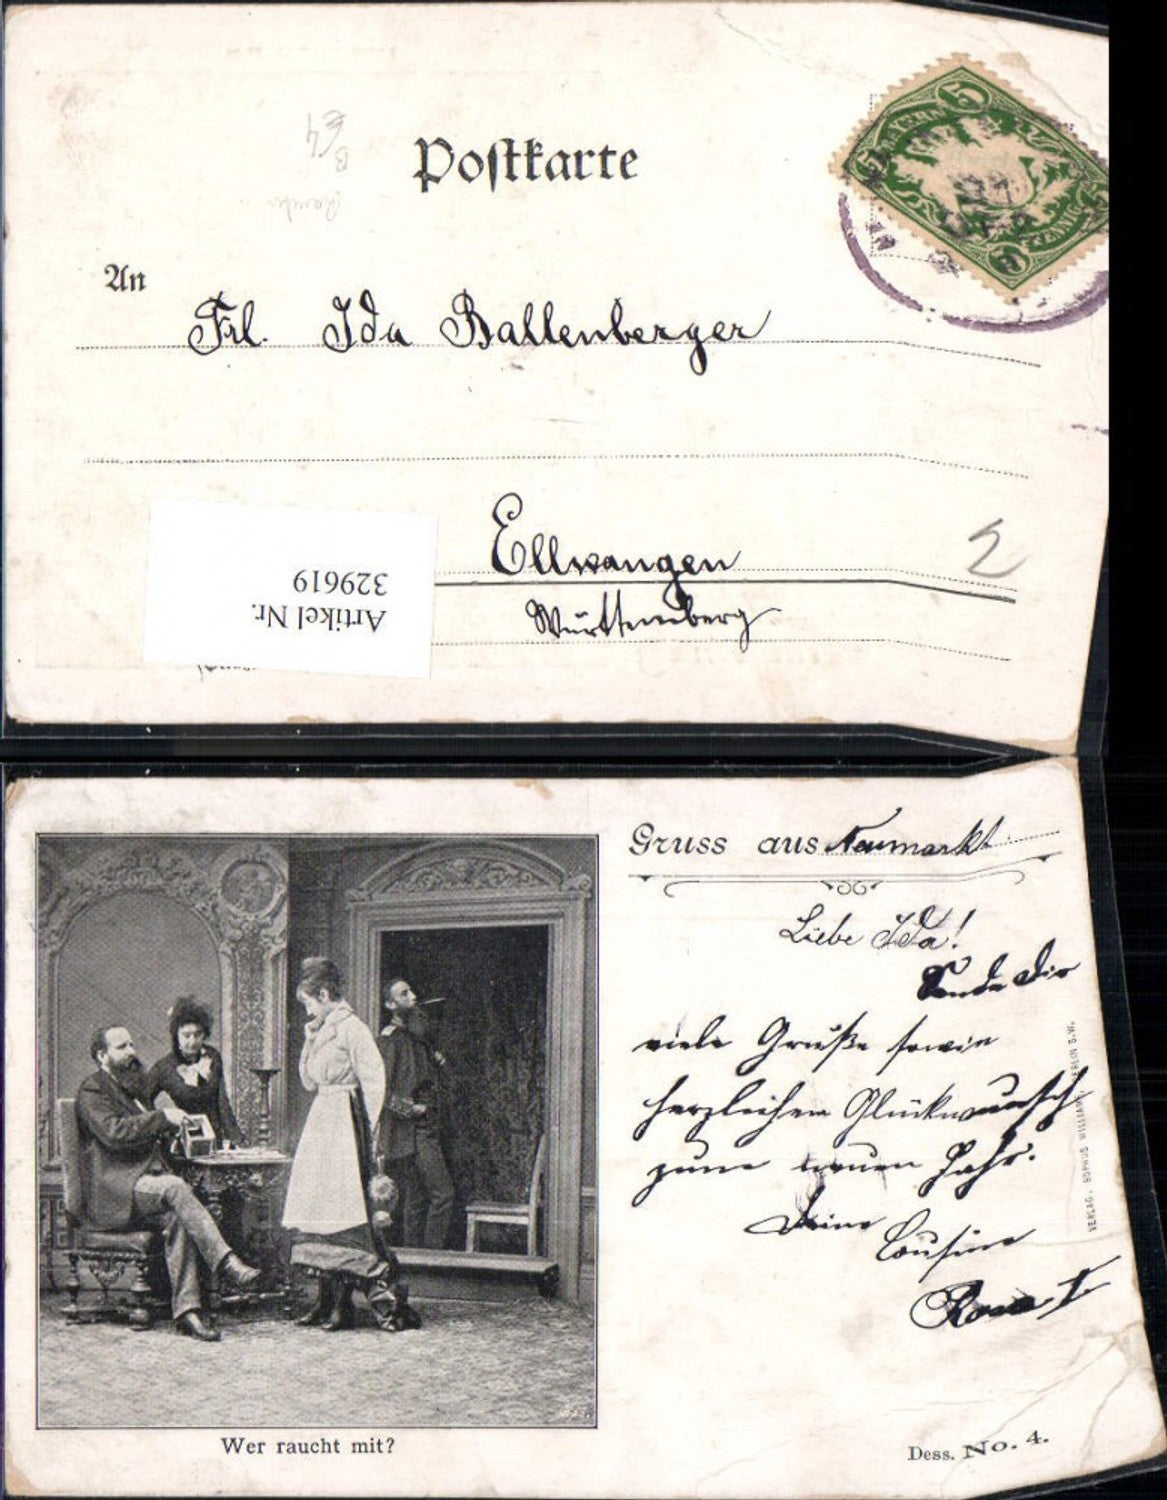 Postkarte
BAYERN
5
5
5
PFENNIG
B
£4
An
Frl. Ida Ballenberger
Ellwangen
Württemberg
2
Artikel Nr.
329619
Gruss aus Neumarkt
Liebe Ida!
Sende Dir
viele Grüße sowie
herzlichen Glückwunsch
zum neuen Jahr.
Deine
Cousine
Rosa T.
VERLAG, SOPHUS WILLIAMS, BERLIN S.W.
Wer raucht mit?
Dess. No. 4.